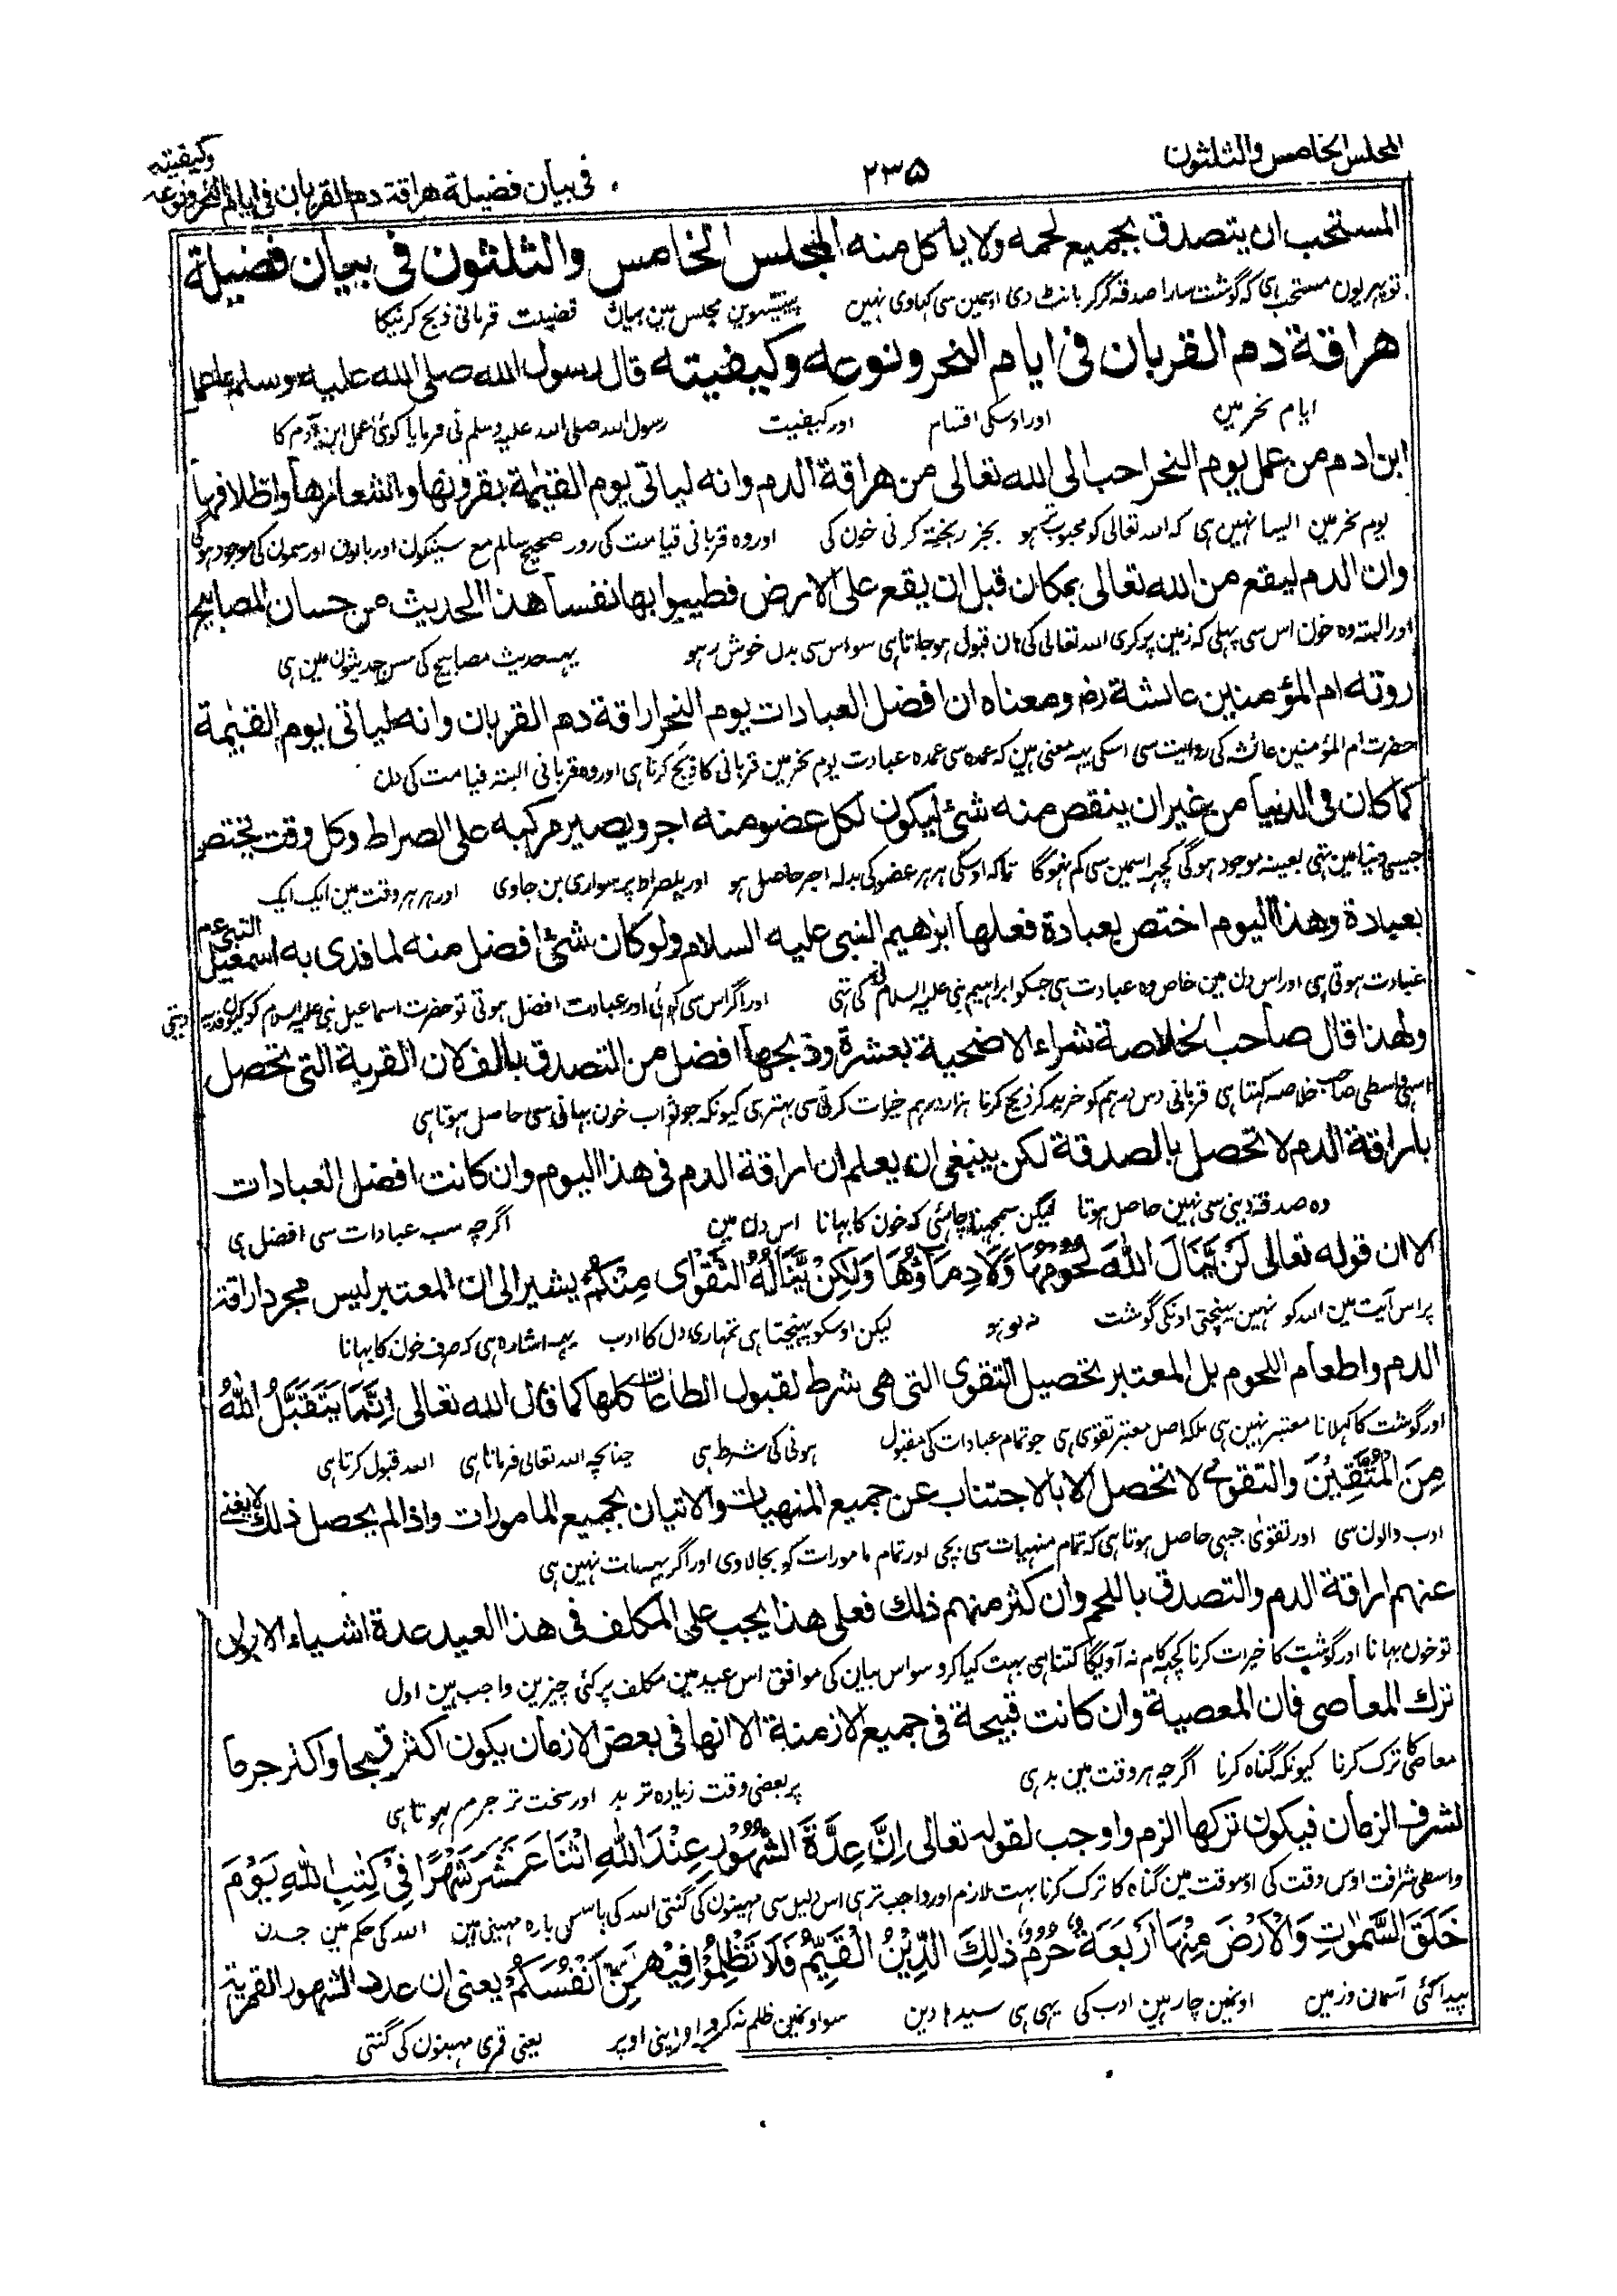 المجلس الخامس والثلثون
۲۳۵
فى بيان فضيلة هراقة دم القربان فى ايام النحر ونوعه وكيفيته
المستحب ان يتصدق بجميع لحمه ولا ياكل منه المجلس الخامس والثلثون فى بيان فضيلة
تو پهر یون مستحب ہی کہ گوشت سارا صدقہ کر کر بانٹ دی اوسمین سی کہاوی نہین پینتیسوین مجلس مین بیان فضیلت قربانی ذبح کرنیکا
هراقة دم القربان فى ايام النحر ونوعه وكيفيته قال رسول الله صلى الله عليه وسلم ما عمل
ایام نحر مین اور اوسکی اقسام اور کیفیت رسول اللہ صلی اللہ علیہ وسلم نی فرمایا کوئی عمل ابن آدم کا
ابن ادم من عمل يوم النحر احب الى الله تعالى من هراقة الدم وانه لياتى يوم القيٰمة بقرونها واشعارها واظلافها
یوم نحر مین ایسا نہین ہی کہ اللہ تعالی کو محبوب ہو بجز ریختہ کرنی خون کی اور وہ قربانی قیامت کی روز صحیح سالم مع سینگون اور بالون اور سمون کی موجود ہوگی
وان الدم ليقع من الله تعالى بمكان قبل ان يقع على الارض فطيبوا بها نفسا هذا الحديث من حسان المصابيح
اور البتہ وہ خون اس سی پہلی کہ زمین پر گری اللہ تعالی کی ہان قبول ہو جاتا ہی سو اس سی بدل خوش رہو یہہ حدیث مصابیح کی حسن حدیثون مین ہی
روته ام المؤمنين عائشة رض ومعناه ان افضل العبادات يوم النحر اراقة دم القربان وانه لياتى يوم القيٰمة
حضرت ام المؤمنین عائشہ کی روایت سی اسکی یہہ معنی ہین کہ عمدہ سی عمدہ عبادت یوم نحر مین قربانی کا ذبح کرنا ہی اور وہ قربانی البتہ قیامت کی دن
كما كان فى الدنيا من غير ان ينقص منه شئ ليكون لكل عضو منه اجر ويصير مركبه على الصراط وكل وقت يختص
جیسی دنیا مین تہی بعینہ موجود ہوگی کچہہ اسمین سی کم نہوگا تاکہ اوسکی ہر ہر عضو کی بدلہ اجر حاصل ہو اور پلصراط پر سواری بن جاوی اور ہر ہر وقت مین ایک ایک
بعبادة وهذا اليوم اختص بعبادة فعلها ابرٰهيم النبى عليه السلام ولو كان شئ افضل منه لما فدى به اسمعيل النبى عم
عبادت ہوتی ہی اور اس دن مین خاص وہ عبادت ہی جسکو ابراہیم نبی علیہ السلام نی کی تہی اور اگر اس سی کوئی اور عبادت افضل ہوتی تو حضرت اسماعیل نبی علیہ السلام کو کیون فدیہ دیتی
ولهذا قال صاحب الخلاصة شراء الاضحية بعشرة وذبحها افضل من التصدق بالف لان القربة التى تحصل
اسی واسطی صاحب خلاصہ کہتا ہی قربانی دس درہم کو خرید کر ذبح کرنا ہزار درہم خیرات کرنی سی بہتر ہی کیونکہ جو ثواب خون بہانی سی حاصل ہوتا ہی
باراقة الدم لا تحصل بالصدقة لكن ينبغى ان يعلم ان اراقة الدم فى هذا اليوم وان كانت افضل العبادات
وہ صدقہ دینی سی نہین حاصل ہوتا لیکن سمجہنا چاہئی کہ خون کا بہانا اس دن مین اگرچہ سب عبادات سی افضل ہی
الا ان قوله تعالى لَنْ يَّنَالَ اللّٰهَ لُحُوْمُهَا وَلَا دِمَاؤُهَا وَلٰكِنْ يَّنَالُهُ التَّقْوٰى مِنْكُمْ يشير الى ان المعتبر ليس مجرد اراقة
پر اس آیت مین اللہ کو نہین پہنچتی اونکی گوشت نہ لوہو لیکن اوسکو پہنچتا ہی تمہاری دل کا ادب یہہ اشارہ ہی کہ صرف خون کا بہانا
الدم واطعام اللحوم بل المعتبر تحصيل التقوى التى هى شرط لقبول الطاعات كلها كما قال الله تعالى اِنَّمَا يَتَقَبَّلُ اللّٰهُ
اور گوشت کا کہلانا معتبر نہین ہی بلکہ اصل معتبر تقوی ہی جو تمام عبادات کی مقبول ہونی کی شرط ہی چنانچہ اللہ تعالی فرماتا ہی اللہ قبول کرتا ہی
مِنَ الْمُتَّقِيْنَ والتقوى لا تحصل الا بالاجتناب عن جميع المنهيات والاتيان بجميع المامورات واذا لم يحصل ذلك لا يغنى
ادب والون سی اور تقویٰ جبہی حاصل ہوتا ہی کہ تمام منہیات سی بچی اور تمام مامورات کو بجا لاوی اور اگر یہہ بات نہین ہی
عنهم اراقة الدم والتصدق باللحم وان كثر منهم ذلك فعلى هذا يجب على المكلف فى هذا العيد عدة اشياء الاول
تو خون بہانا اور گوشت کا خیرات کرنا کچہہ کام نہ آویگا کتنا ہی بہت کیا کرو سو اس بیان کی موافق اس عید مین مکلف پر کئی چیزین واجب ہین اول
ترك المعاصى فان المعصية وان كانت قبيحة فى جميع الازمنة الا انها فى بعض الازمان يكون اكثر قبحا واكثر جرما
معاصی کا ترک کرنا کیونکہ گناہ کرنا اگرچہ ہر وقت مین بد ہی پر بعضی وقت زیادہ تر بد اور سخت تر جرم ہوتا ہی
لشرف الزمان فيكون تركها الزم واوجب لقوله تعالى اِنَّ عِدَّةَ الشُّهُوْرِ عِنْدَ اللّٰهِ اثْنَا عَشَرَ شَهْرًا فِيْ كِتٰبِ اللّٰهِ يَوْمَ
واسطی شرافت اوس وقت کی اوسوقت مین گناہ کا ترک کرنا بہت لازم اور واجب تر ہی اس دلیل سی مہینون کی گنتی اللہ کی پاس کی بارہ مہینی ہین اللہ کی حکم مین جسدن
خَلَقَ السَّمٰوٰتِ وَالْاَرْضَ مِنْهَا اَرْبَعَةٌ حُرُمٌ ذٰلِكَ الدِّيْنُ الْقَيِّمُ فَلَا تَظْلِمُوْا فِيْهِنَّ اَنْفُسَكُمْ يعنى ان عدد الشهور القمرية
پیدا کئی آسمان و زمین اونمین چار ہین ادب کی یہی ہی سیدہا دین سو اونمین ظلم نہ کرو اپنی اوپر یعنی قمری مہینون کی گنتی